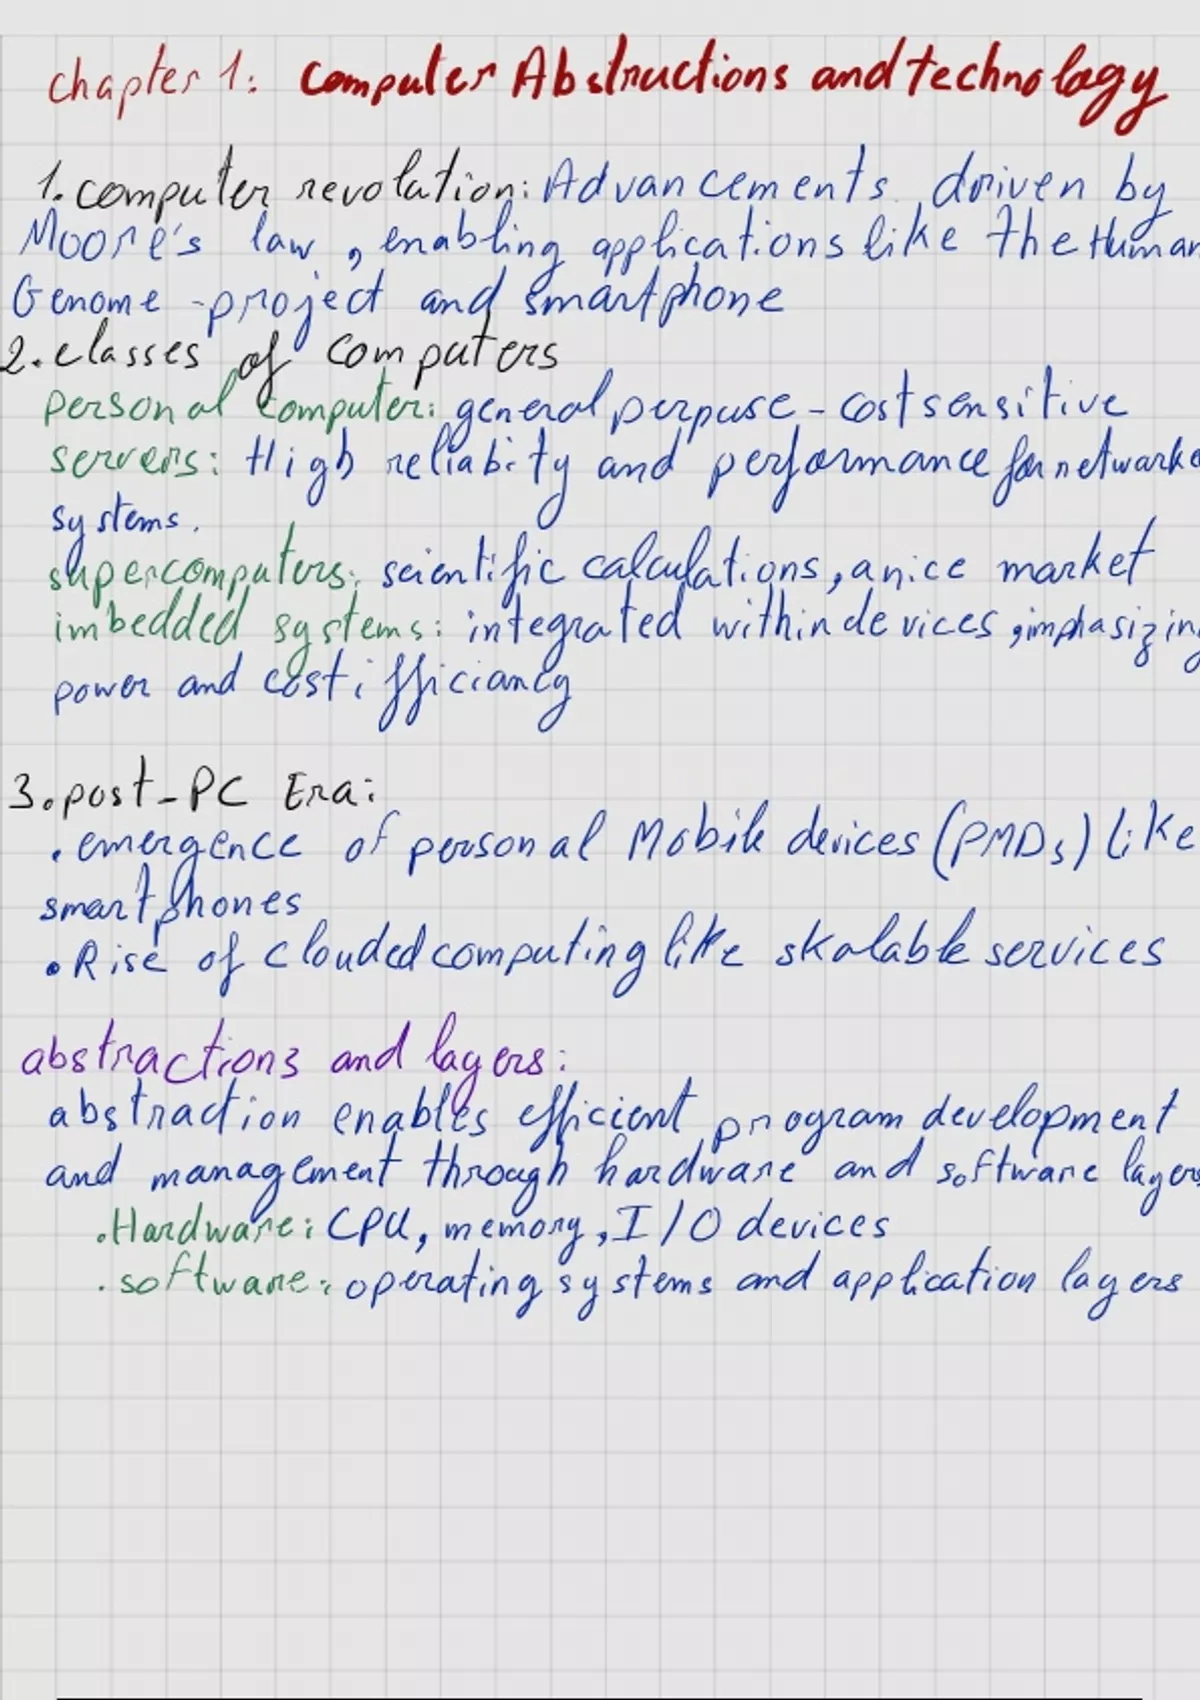 chapter 1: Computer Abstructions and technology
1. computer revolation: Advancements driven by
Moore's law, enabling applications like the Human
Genome -project and smartphone
2. classes of computers
personal computer: general perpuse - cost sensitive
servers: High reliabity and performance for networke
systems.
supercomputers: scientific calculations, a nice market
imbedded systems: integrated within devices, imphasizing
power and cost ifficiancy
3. post-PC Era:
. emergence of personal Mobile devices (PMDs) like
smartphones
• Rise of clouded computing like skalable services
abstractions and layers:
abstraction enables efficient program development
and management through hardware and software layers
. Hardware: CPU, memory, I/O devices
. software: operating systems and application layers